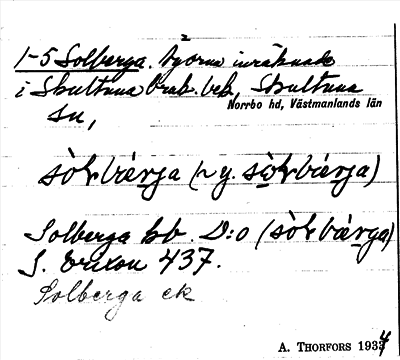 2
1-5 Solberga. byarna inräknade
i Skultuna bruk. beb, Skultuna
Norrbo hd, Västmanlands län
sn,
sò̀ɫbǽrja (~ y. sò̀ɫbǽrja)
Solberga bb. D:o (sò̀ɫbǽrja)
S. Erixon 437.
Solberga ek
A. THORFORS 1934